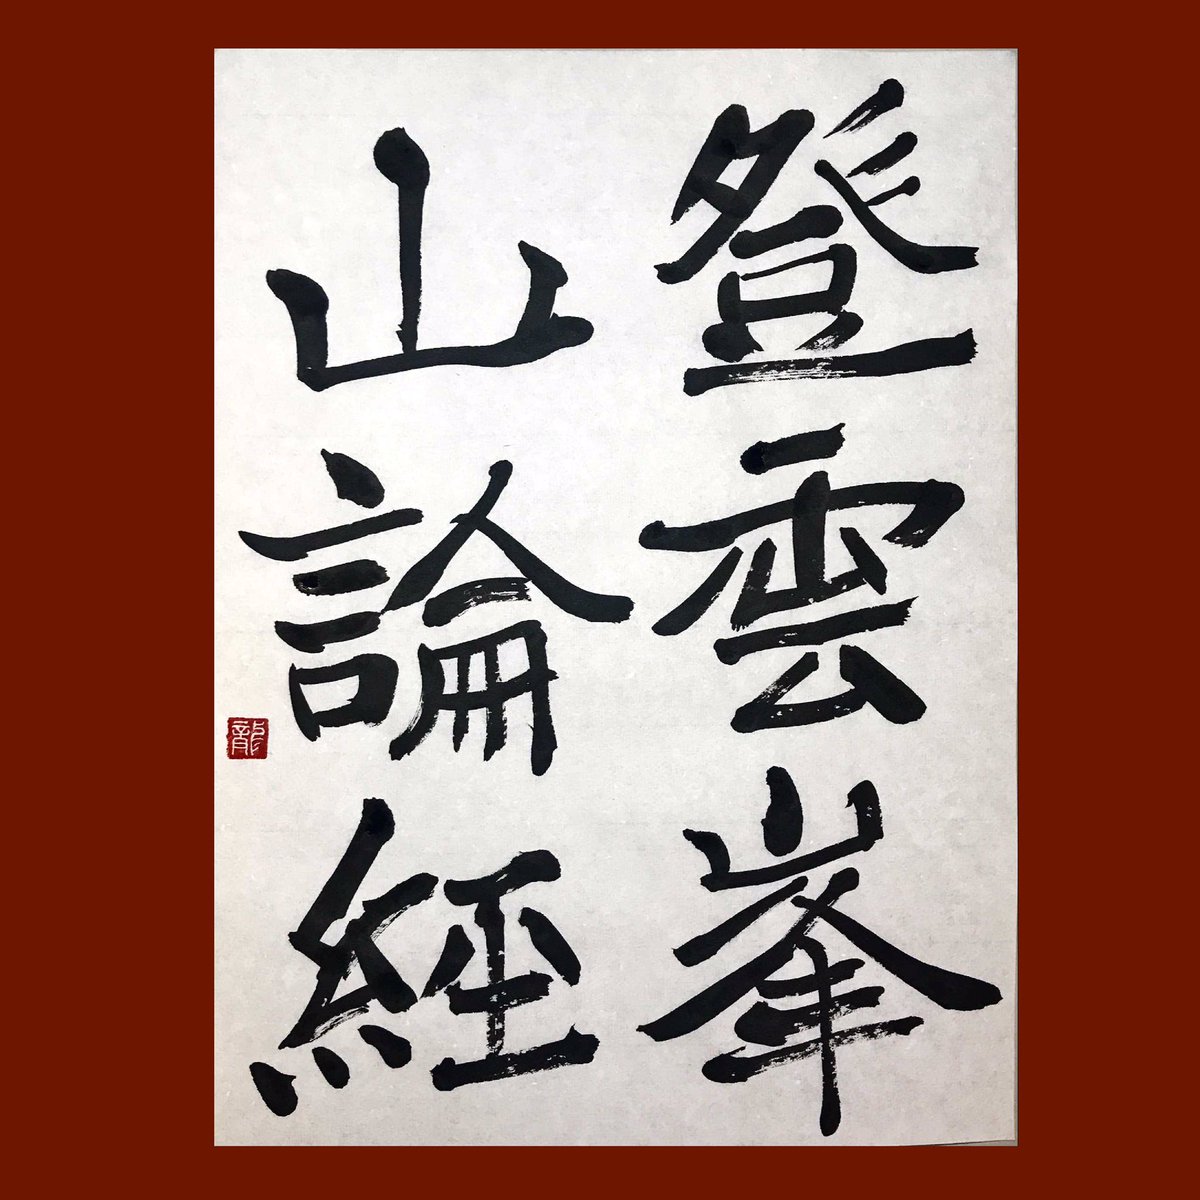 登雲峯
山論經
龍